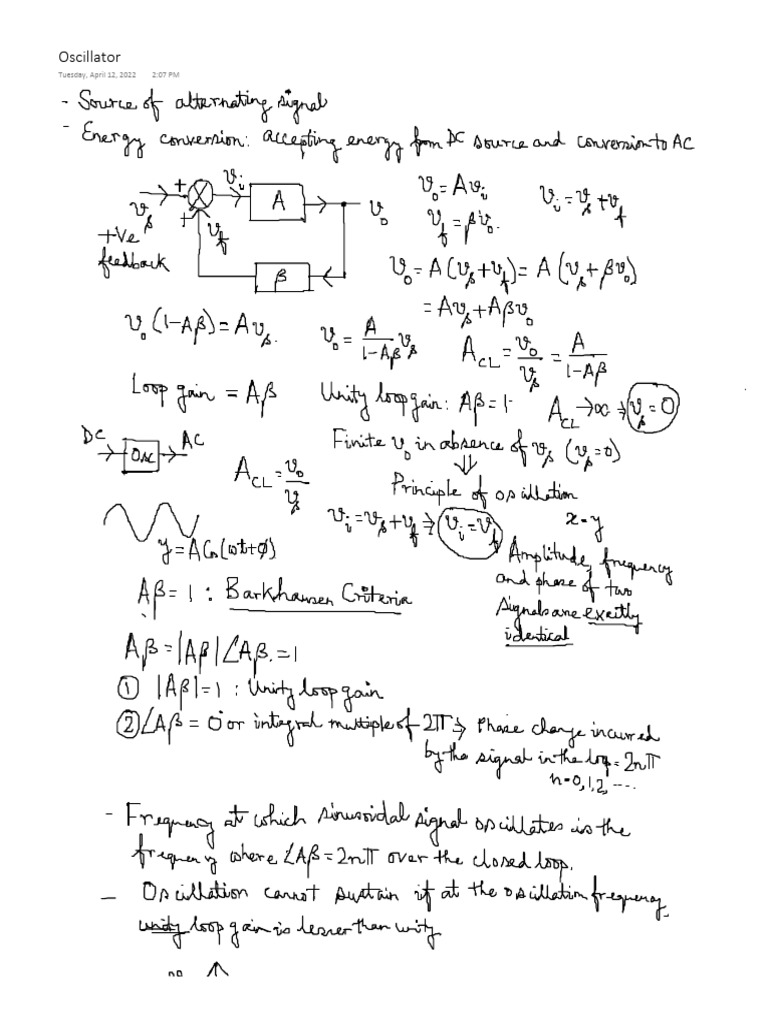 Oscillator
Tuesday, April 12, 2022 2:07 PM
- Source of alternating signal
- Energy conversion: accepting energy from DC source and conversion to AC
+ v_i A v_o
v_s + v_f
+ve feedback
β
v_o = A v_i
v_f = β v_o.
v_i = v_s + v_f
v_o = A(v_s + v_f) = A(v_s + βv_o)
= Av_s + Aβv_o
v_o(1-Aβ) = A v_s. v_o = A/(1-Aβ) v_s A_CL = v_o/v_s = A/(1-Aβ)
Loop gain = Aβ Unity loop gain: Aβ = 1 A_CL → ∞ ⇒ v_s = 0
DC OSC AC
Finite v_o in absence of v_s (v_s = 0)
⇓
A_CL = v_o/v_s
Principle of oscillation
v_i = v_s + v_f ⇒ v_i = v_f
x = y
y = A Cos(ωt+φ)
Amplitude, frequency
and phase of two
signals are exactly
identical
Aβ = 1 : Barkhausen Criteria
Aβ = |Aβ| ∠Aβ. = 1
① |Aβ| = 1 : Unity loop gain
② ∠Aβ = 0° or integral multiple of 2π ⇒ Phase change incurred
by the signal in the loop = 2nπ
n = 0, 1, 2, ....
- Frequency at which sinusoidal signal oscillates is the
frequency where ∠Aβ = 2nπ over the closed loop.
- Oscillation cannot sustain if at the oscillation frequency,
unity loop gain is lesser than unity
no ↑